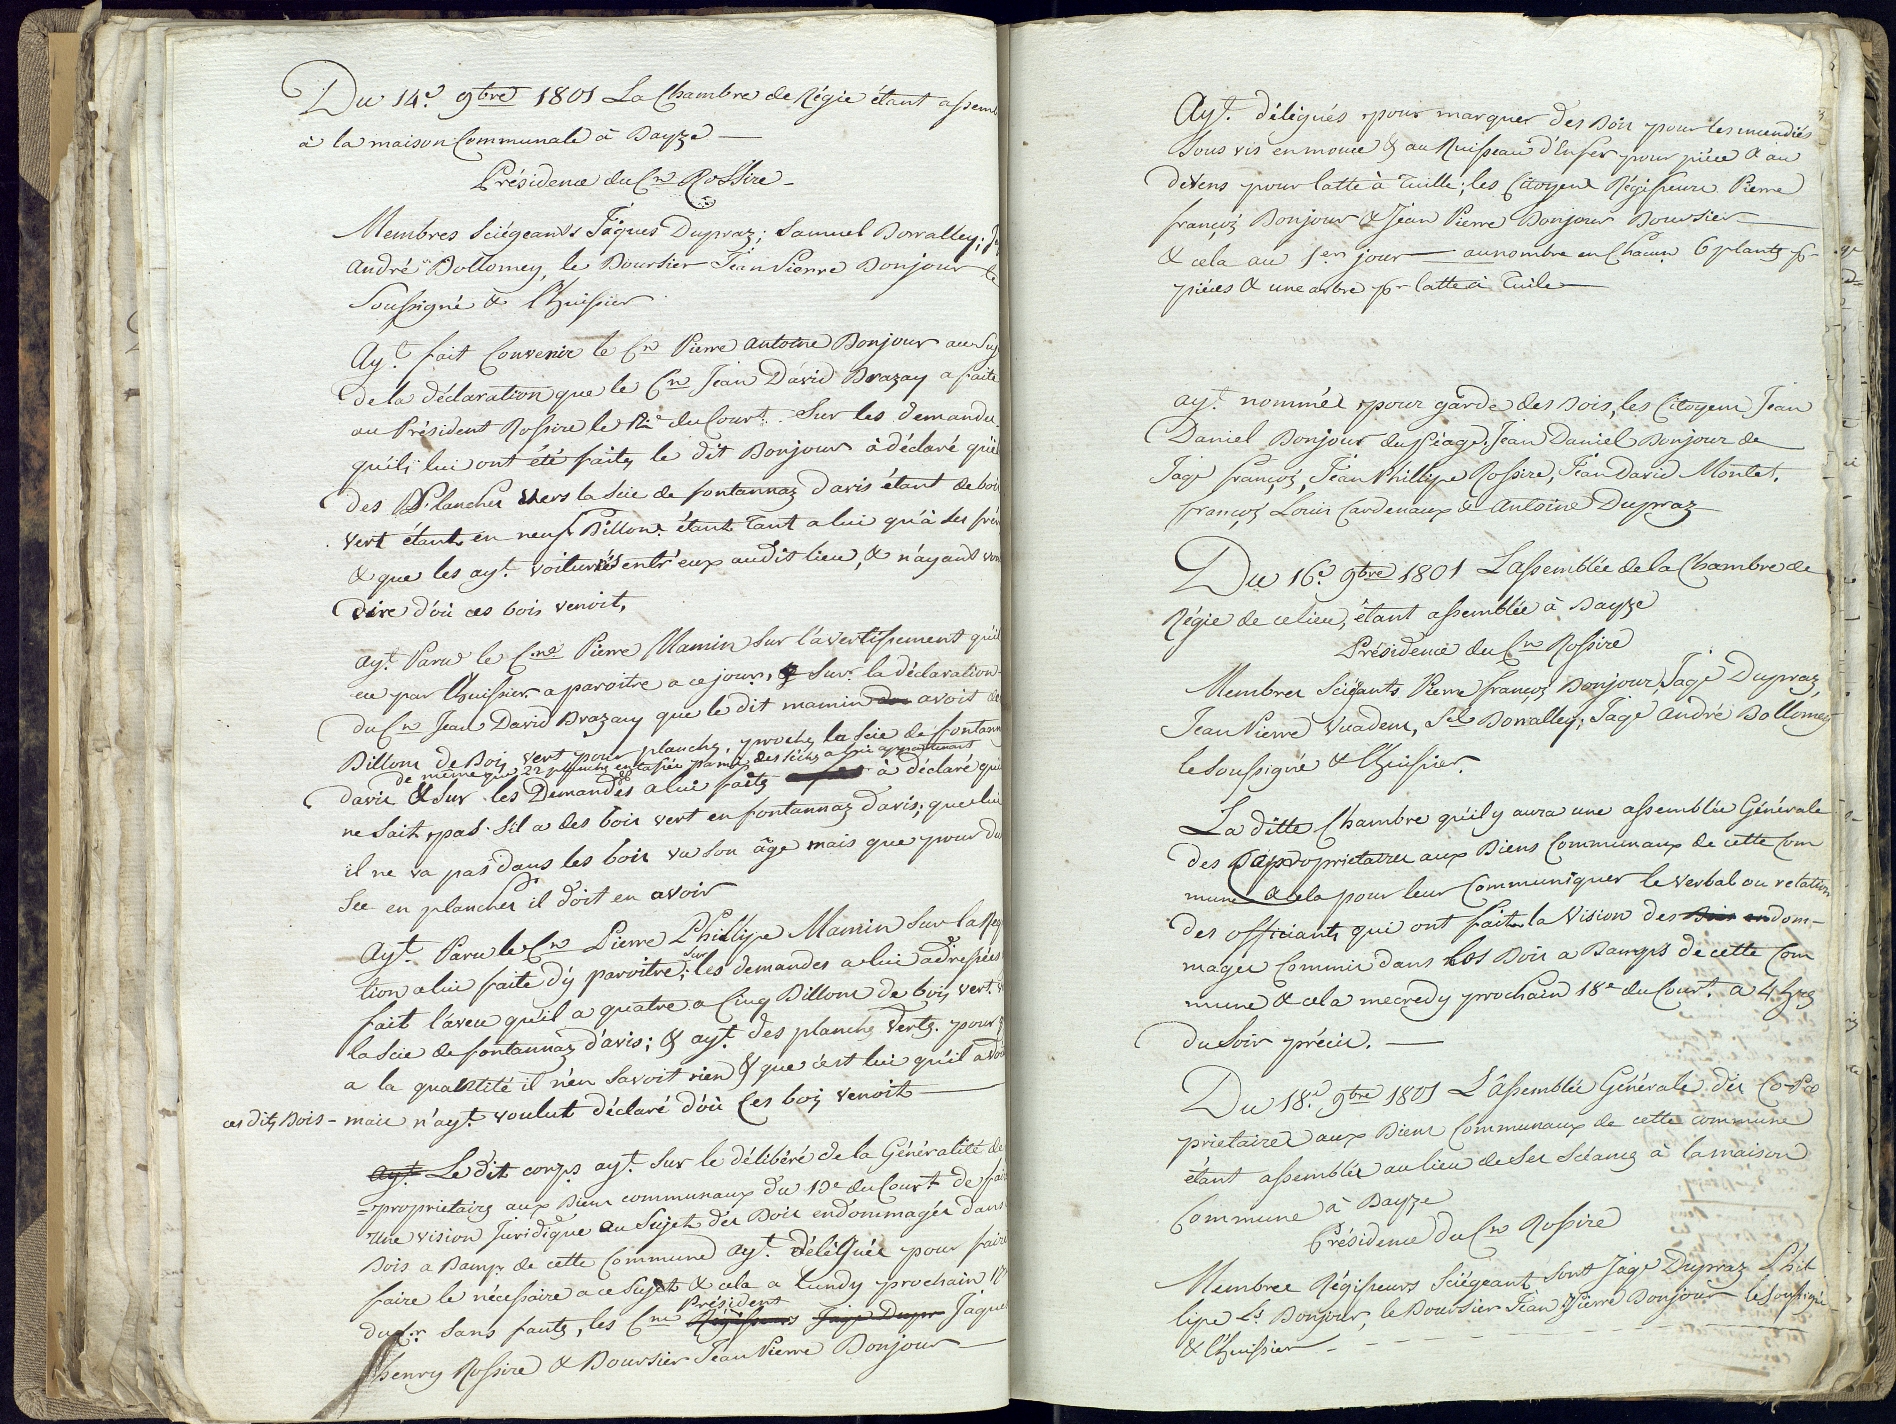 Du 14.e 9bre 1801 La Chambre de Régie étant assem
à la maison Communale à Bayze —
Présidence du Cn Rossire –
Membres Sciégeants Jâques Dupraz; Samuel Borralley;
André Bollomey, le Boursier Jean Pierre Bonjour le
Soussigné & l'huissier
Ay.t fait Convenir le Cn Pierre Antoine Bonjour au Suj
de la déclaration que le Cn Jean David Brazay a faite
au Président Rossire le 12e du Cour.t Sur les demandes
qu'ils lui ont été faites le dit Bonjour à déclaré qu'il
des Planches Vers la Scie de fontannaz davis étant de bois
Vert étant en neuf Billons étant tant a lui qu'à ses frér
& que les ay.t Voiturés entr'eux audit lieu, & n'ayant vou
dire d'où ces bois venoit,
ay.t Paru le Cne Pierre Mamin Sur l'avertissement qu'il
eu par l'huissier a paroitre a ce jour, & Sur la déclaration
du Cn Jean David Brazay que le dit mamin avoit de
Billons de Bois vert pour planche, proche la Scie de fontann
de même que 22 planches entassées parmis des séches a lui appartenant
davis & Sur les Demandes a lui faites à déclaré qu'il
ne Sait pas s'il a des bois vert en fontannaz davis; que lui
il ne va pas dans les bois vu Son âge mais que pour du
Sec en planches il doit en avoir
Ay.t Paru le Cn Pierre Phillipe Mamin Sur la Req
tion a lui faite d'y paroitre; Sur les demandes a lui adressées
fait l'aveu qu'il a quatre a Cinq Billons de bois vert
la Scie de fontannaz d'avis; & ay.t des planches Vertes. pour
a la quantité il n'en Savoit rien & que c'est lui qu'il a Voi
ces dits Bois – mais n'ay.t voulut déclaré d'où Ces bois Venoit —
ay.t Le dit corps ay.t Sur le délibéré de la Généralité de
propriétaires aux Biens communaux du 13e du Cour.t de fai
une vision Juridique au Sujet des Bois endommagés dans
Bois a Bamps de cette Commune ay.t délégués pour faire
faire le nécessaire a ce Sujet & cela a Lundy prochain 17
du Cr. Sans faute, les Cns Président Régisseurs Jage Dupr Jaques
henry Rossire & Boursier Jean Pierre Bonjour —
Ay.t délégués pour marquer des Bois pour les incendiés
Sous vis en mouse & au Ruisseau d'Enfer pour piéce & au
devens pour latte à tuille; les Citoyens Régisseurs Pierre
françois Bonjour & Jean Pierre Bonjour Boursier —
& cela au 1er jour — au nombre en Chacun 6 plantes pr
piéces & une arbre pr latte à Tuile —
ay.t nommés pour garde des Bois, les Citoyens Jean
Daniel Bonjour du Piage, Jean Daniel Bonjour de
Jage françois, Jean Phillipe Rossire, Jean David Montet,
françois Louis Cardenaux & Antoine Dupraz
Du 16.e 9bre 1801 L'assemblée de la Chambre de
Régie de ce lieu, étant assemblée à Bayze
Présidence du Cn Rossire
Membres Sciéants Pierre françois Bonjour, Jage Dupraz,
Jean Pierre Vuadens, Sel Borralley; Jage André Bollomey
le Soussigné & l'huissier.
La ditte Chambre qu'il y aura une assemblée Générale
des Copropriétaires aux Biens Communaux de cette Com
mune & cela pour leur Communiquer le Verbal ou relation
des officiants qui ont faits la Vision des Bois endom-
magés Commis dans les Bois a Bamps de cette Com
mune & cela mecredy prochain 18e du Cour.t a 4 hres
du Soir précis. —
Du 18.e 9bre 1801 L'assemblée Générale des Co-Pro
prietaires aux Biens Communaux de cette commune
étant assemblée au lieu de Ses Séances à la maison
Commune à Bayze
Présidence du Cn Rossire
Membres Régisseurs Sciégeant Sont Jage Dupraz Phil
lipe Ls Bonjour, le Boursier Jean Pierre Bonjour le Soussigné
& l'huissier –